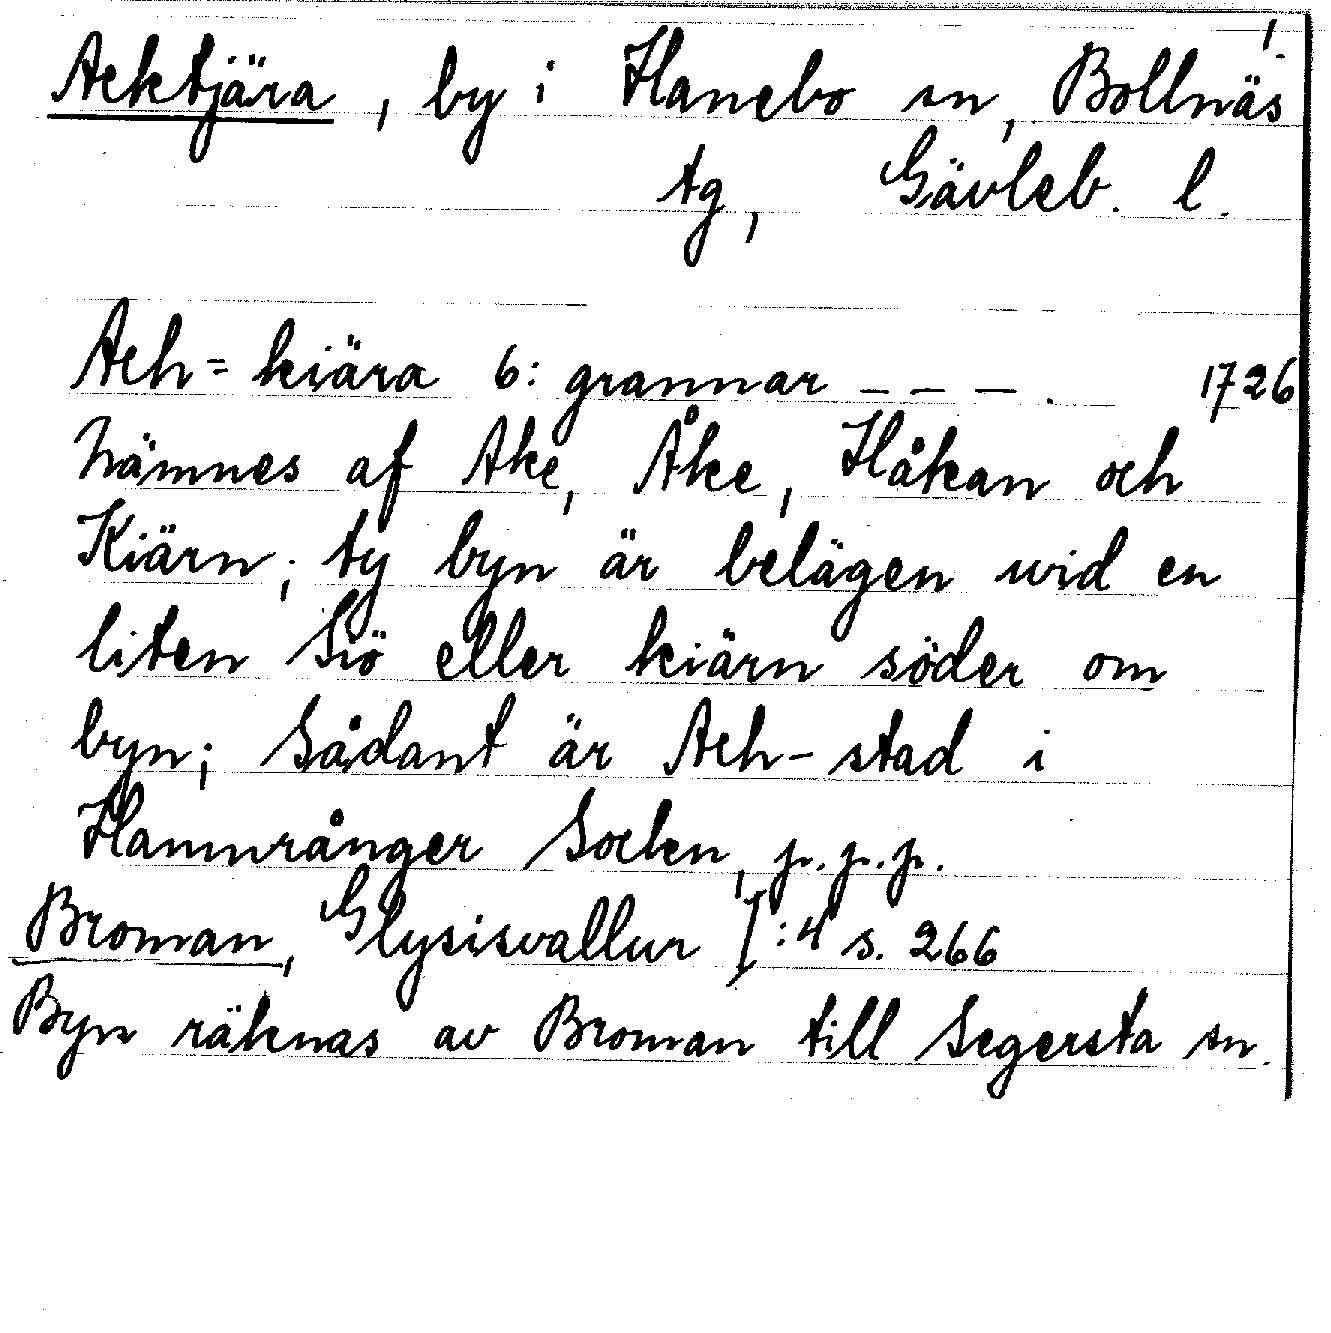 1.
Acktjära, by i Hanebo sn, Bollnäs
tg, Gävleb. l.
Ach=kiära 6: grannar _ _ _ . 1726
Nämnes af Ake, Åke, Håkan och
Kiärn; ty byn är belägen wid en
liten Siö eller kiärn söder om
byn; Sådant är Ach-stad i
Hamrånger Socken, p.p.p.
Broman, Glysisvallur I:4 s. 266
Byn räknas av Broman till Segersta sn.